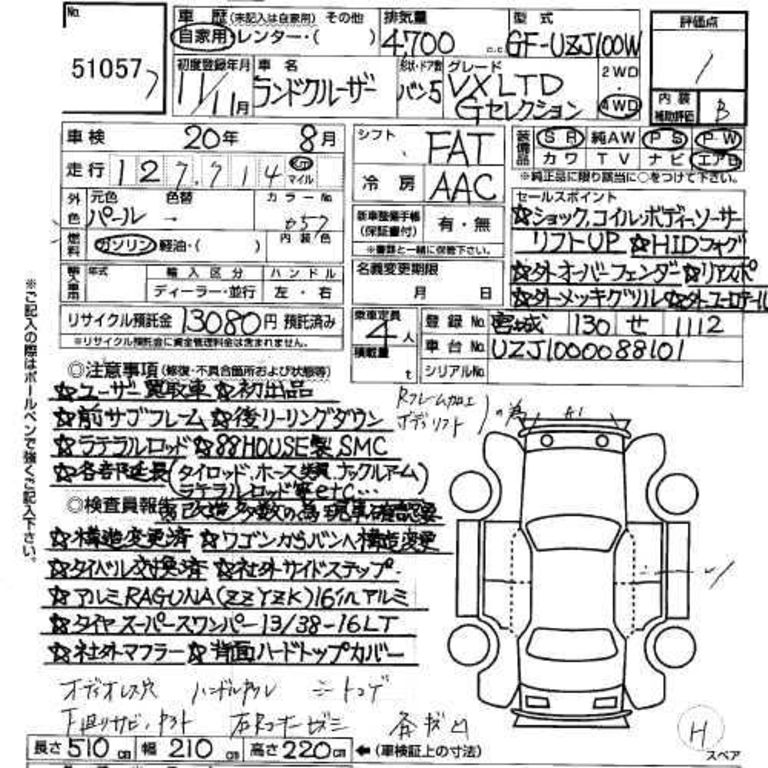 No. 51057
車歴(未記入は自家用) その他 排気量 型式
自家用・レンター・( ) 4,700 c.c. GF-UZJ100W
評価点
初度登録年月 車名 形状・ドア数 グレード 2WD
11/11月 ランドクルーザー バン5 VXLTD Gセレクション 4WD
内装補助評価 B
車検 20年 8月 シフト FAT 装備品 SR 純AW PS PW
走行 127,714 km マイル 冷房 AAC カワ TV ナビ エアB
※純正品に限り該当に○をつけて下さい。
外色 元色 色替 カラーNo.
パール - 057
新車整備手帳(保証書付) 有・無
※書類と一緒に保管下さい。
セールスポイント
☆ショック、コイル・ボディーソーサー
リフトUP ☆HIDフォグ
☆外オーバーフェンダー☆リアスパ
☆外メッキグリル
燃料 ガソリン・軽油・( ) 内装色
輸入車用 年式 輸入区分 ハンドル
ディーラー・並行 左・右
名義変更期限
月 日
リサイクル預託金 13080円 預託済み
※リサイクル預託金に資金管理料金は含まれません。
乗車定員 4人
積載量 t
登録No. 宮城 130 せ 1112
車台No. UZJ1000088101
シリアルNo.
※ご記入の際はボールペンで強くご記入下さい。
◎注意事項(修復・不具合箇所および状態等)
☆ユーザー買取車 ☆初出品
☆前サブフレーム ☆後リーリングダウン
☆ラテラルロッド ☆88HOUSE製、SMC
☆各部延長(タイロッド、ホース類、ナックルアーム)
ラテラルロッド等etc…
Rフレーム加工
ボディリフト )の為
A1
◎検査員報告
改造多数の為現車確認要
☆構造変更済 ☆ワゴンからバンへ構造変更
☆タイベル交換済 ☆社外サイドステップ
☆アルミRAGUNA(ZZYZK)16inアルミ
☆タイヤスーパースワンパー13/38-16LT
☆社外マフラー ☆背面ハードトップカバー
オーディオレス穴 ハンドルスレ シートコゲ
下廻りサビ、
H
スペア
長さ510cm 幅210cm 高さ220cm ←(車検証上の寸法)